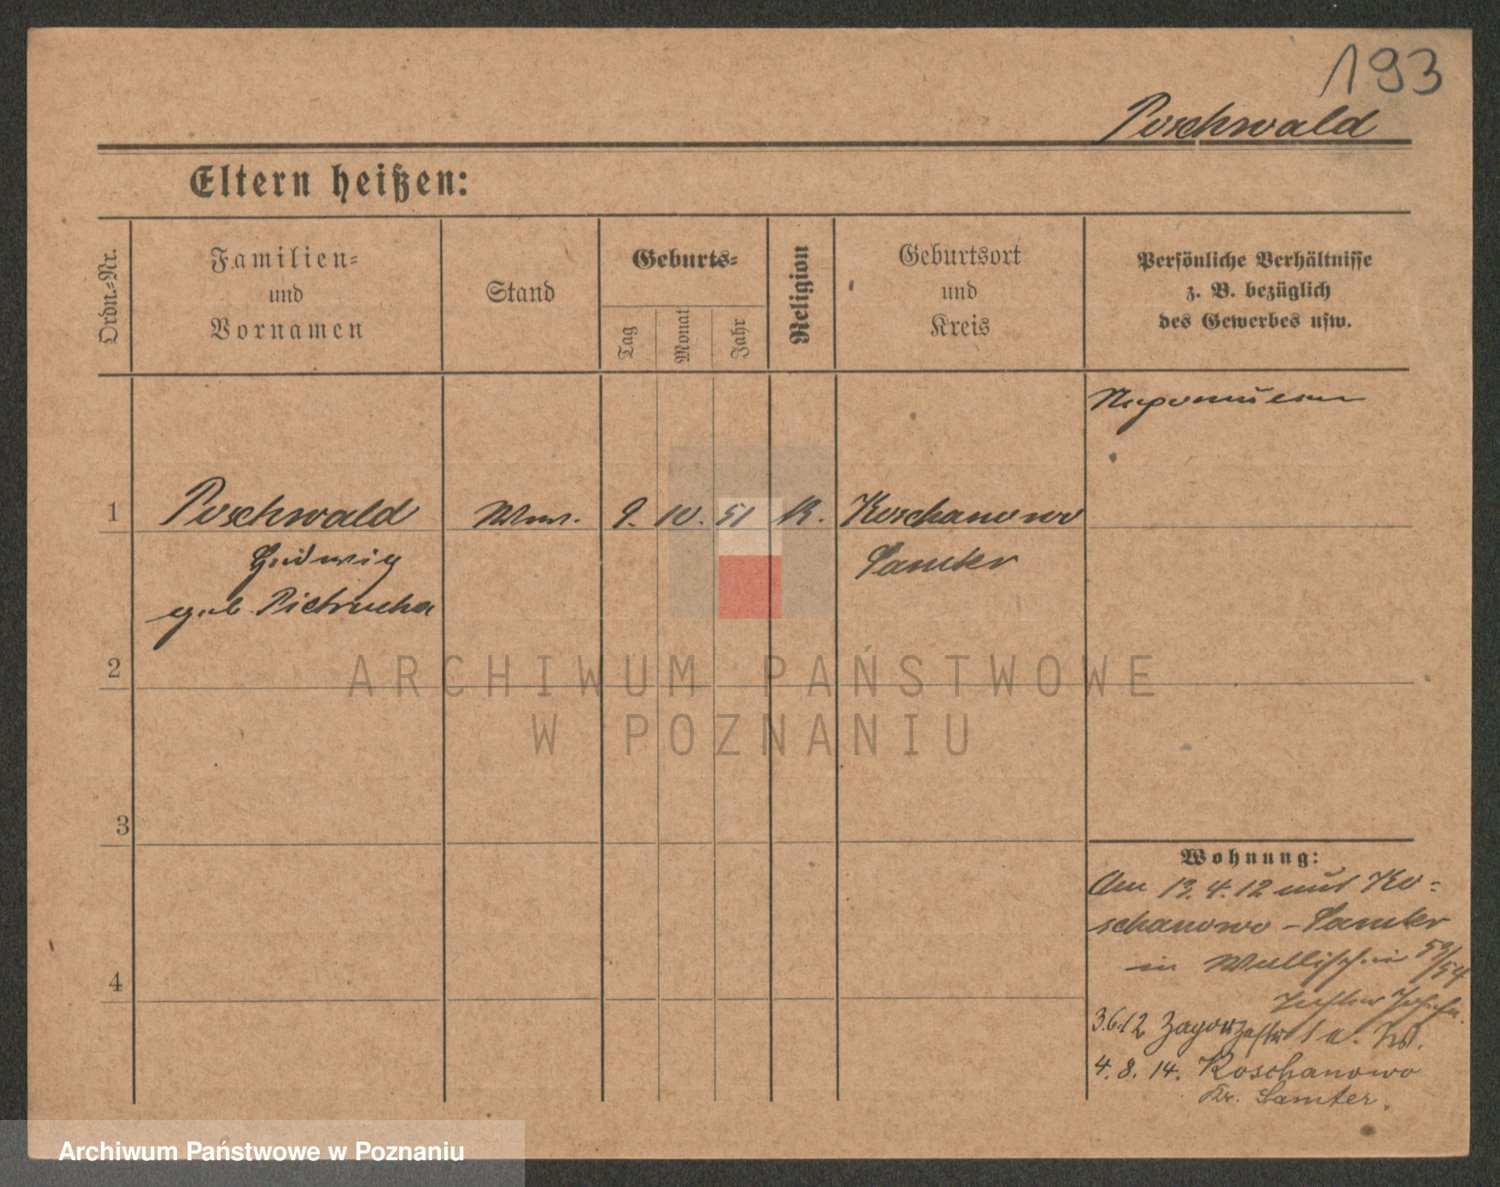 193
Poschwald
Eltern heißen:
Ordn.-Nr.
Familien-
und
Vornamen
Stand
Geburts-
Tag
Monat
Jahr
Religion
Geburtsort
und
Kreis
Persönliche Verhältnisse
z. B. bezüglich
des Gewerbes usw.
1
Poschwald
Ww.
9. 10. 51
K.
Koschanowo
Hedwig
Samter
geb. Pietrucha
2
3
4
Wohnung:
Am 13.4.12 aus Ko-
schanowo - Samter
in Wallischei 53/54
Tochter
3.6.12
4. 8. 14. Koschanowo
Kr. Samter.
ARCHIWUM PAŃSTWOWE
W POZNANIU
Archiwum Państwowe w Poznaniu